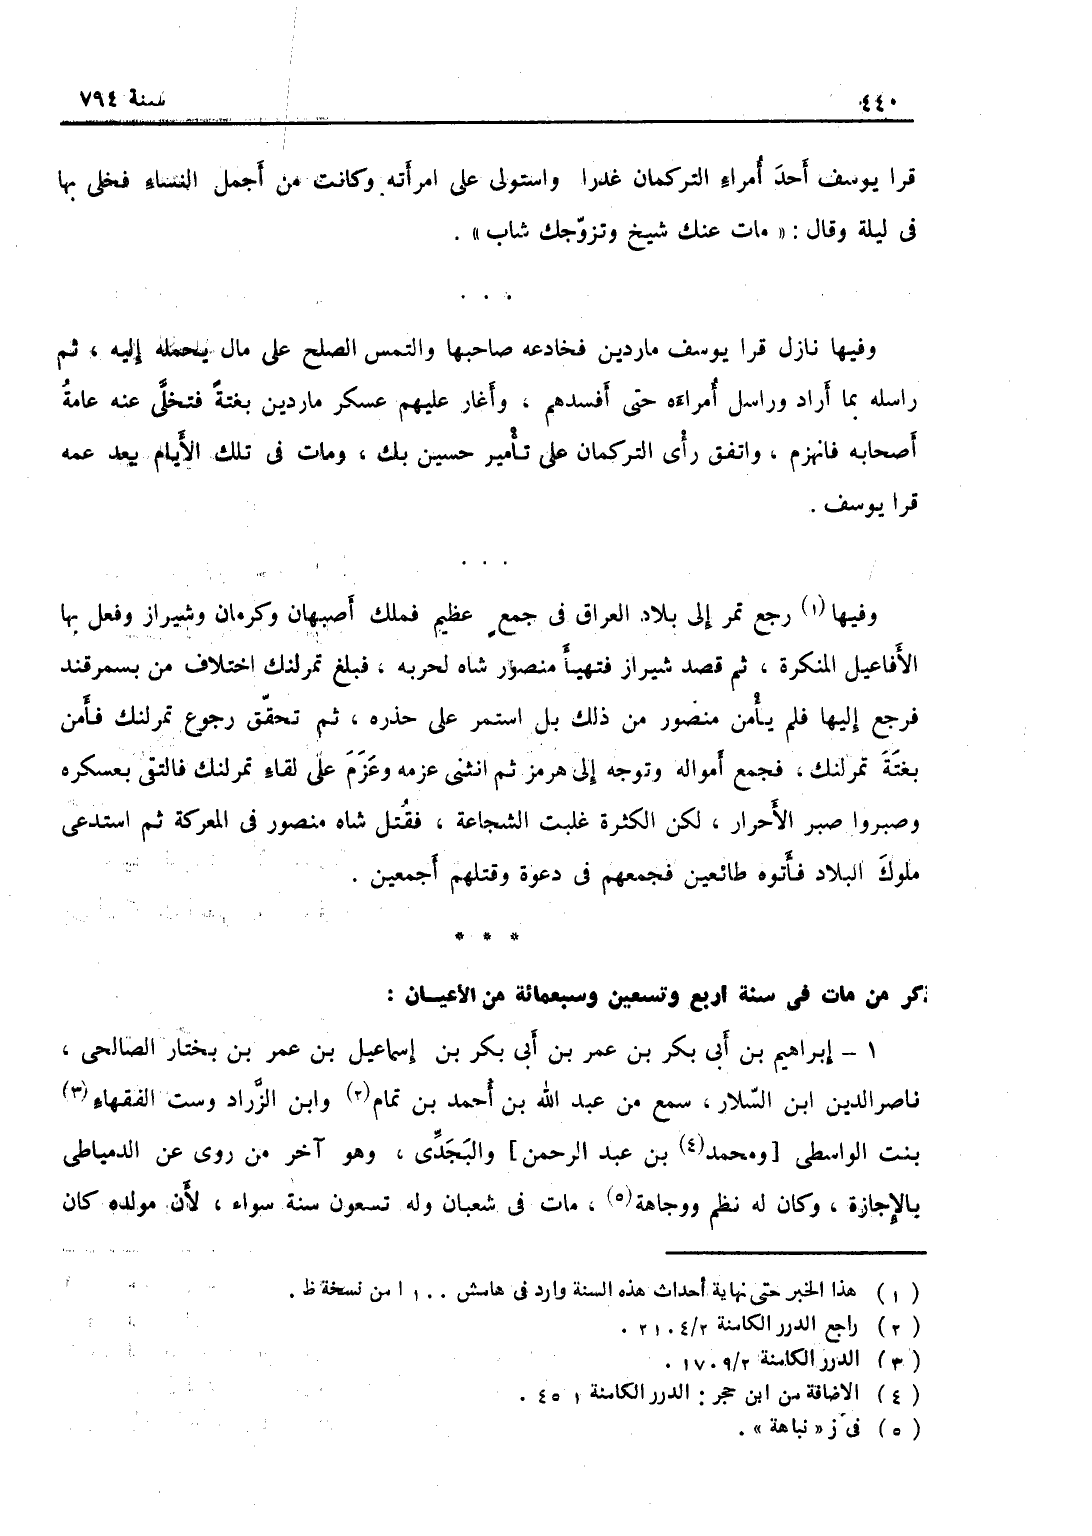 ٤٤٠ سنة ٧٩٤
قرا يوسف أَحدَ أُمراءِ التركمان غدرا واستولى على امرأَته وكانت من أَجمل النساءِ فخلى بها
فى ليلة وقال : « مات عنك شيخ وتزوّجك شاب » .
. . .
وفيها نازل قرا يوسف ماردين فخادعه صاحبها والتمس الصلح على مال يحمله إليه ، ثم
راسله بما أَراد وراسل أُمراءَه حتى أَفسدهم ، وأَغار عليهم عسكر ماردين بغتةً فتخلَّى عنه عامةُ
أَصحابه فانهزم ، واتفق رأْى التركمان على تأْمير حسين بك ، ومات فى تلك الأَيام بعد عمه
قرا يوسف .
. . .
وفيها (١) رجع تمر إلى بلاد العراق فى جمعٍ عظيم فملك أَصبهان وكرمان وشيراز وفعل بها
الأَفاعيل المنكرة ، ثم قصد شيراز فتهيأَ منصور شاه لحربه ، فبلغ تمرلنك اختلاف من بسمرقند
فرجع إليها فلم يأْمن منصور من ذلك بل استمر على حذره ، ثم تحقّق رجوع تمرلنك فأَمن
بغتَةَ تمرلنك ، فجمع أَمواله وتوجه إلى هرمز ثم انثنى عزمه وعَزَمَ على لقاءِ تمرلنك فالتقى بعسكره
وصبروا صبر الأَحرار ، لكن الكثرة غلبت الشجاعة ، فقُتل شاه منصور فى المعركة ثم استدعى
ملوكَ البلاد فأَتوه طائعين فجمعهم فى دعوة وقتلهم أَجمعين .
* * *
ذكر من مات فى سنة اربع وتسعين وسبعمائة من الأعيـان :
١ – إبراهيم بن أَبى بكر بن عمر بن أَبى بكر بن إسماعيل بن عمر بن بختار الصالحى ،
ناصرالدين ابن السّلار ، سمع من عبد الله بن أَحمد بن تمام(٢) وابن الزَّراد وست الفقهاءِ(٣)
بنت الواسطى [ومحمد(٤) بن عبد الرحمن] والبَجَدِّى ، وهو آخر من روى عن الدمياطى
بالإجازة ، وكان له نظم ووجاهة(٥) ، مات فى شعبان وله تسعون سنة سواء ، لأَن مولده كان
( ١ ) هذا الخبر حتى نهاية أحداث هذه السنة وارد فى هامش ١٠٠ ا من نسخة ظ .
( ٢ ) راجع الدرر الكامنة ٢١٠٤/٢ .
( ٣ ) الدرر الكامنة ١٧٠٩/٢ .
( ٤ ) الاضافة من ابن حجر : الدرر الكامنة ١ ٤٥ .
( ٥ ) فى ز « نباهة » .